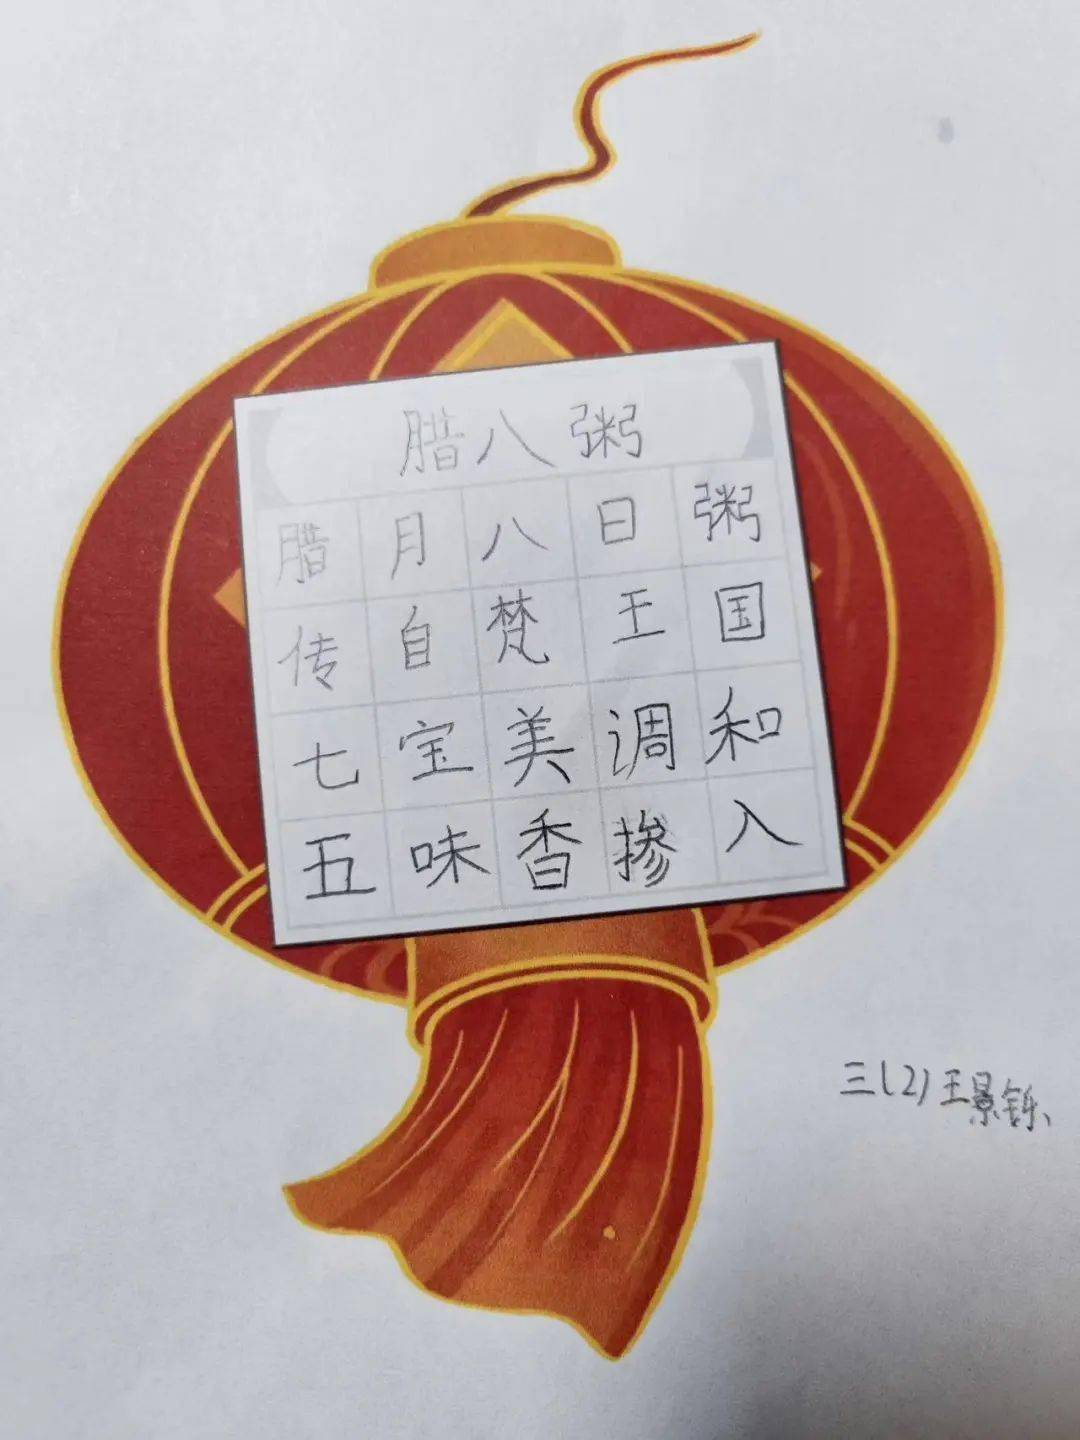 腊八粥
腊月八日粥
传自梵王国
七宝美调和
五味香掺入
三(2)王景铄